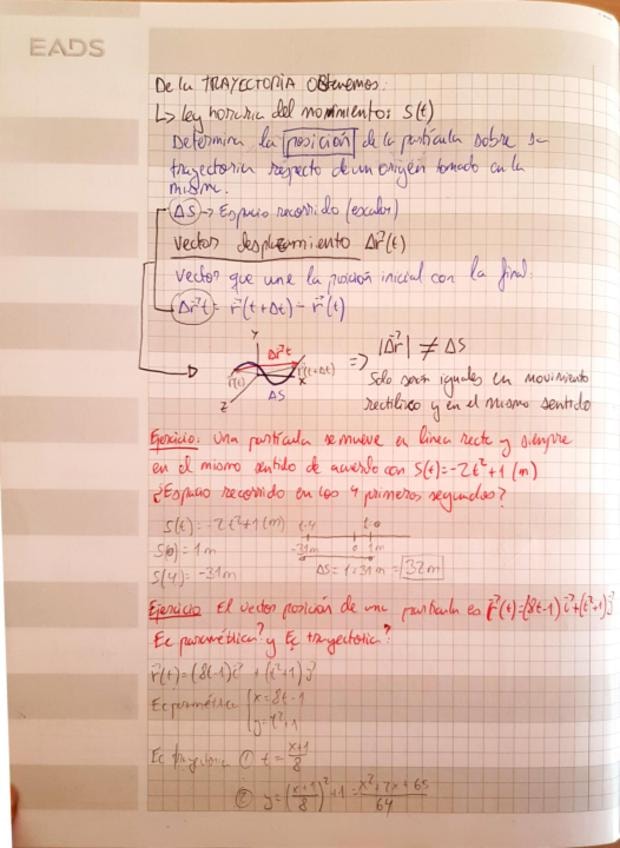 EADS
De la TRAYECTORIA Obtenemos:
↳ ley horaria del movimiento: s(t)
Determina la posición de la partícula sobre su
trayectoria respecto de un origen tomado en la
misma.
Δs → Espacio recorrido (escalar)
Vector desplazamiento Δr⃗(t)
Vector que une la posición inicial con la final.
Δr⃗t = r⃗(t+Δt) - r⃗(t)
Y Δr⃗t r⃗(t) r⃗(t+Δt) X Z Δs
=> |Δr⃗| ≠ Δs
Solo serán iguales en movimiento
rectilíneo y en el mismo sentido
Ejercicio: Una partícula se mueve en línea recta y siempre
en el mismo sentido de acuerdo con s(t)=-2t²+1 (m)
¿Espacio recorrido en los 4 primeros segundos?
s(t)=-2t²+1(m) t=4 t=0
s(0)=1m -31m 0 1m
s(4)=-31m Δs=1+31m=32m
Ejercicio El vector posición de una partícula es r⃗(t)=(8t-1)i⃗+(t²+1)j⃗
Ec paramétrica? y Ec trayectoria?
r⃗(t)=(8t-1)i⃗ +(t²+1)j⃗
Ec paramétrica { x=8t-1
y=t²+1
Ec trayectoria ① t = (x+1)/8
② y=((x+1)/8)²+1 = (x²+2x+65)/64